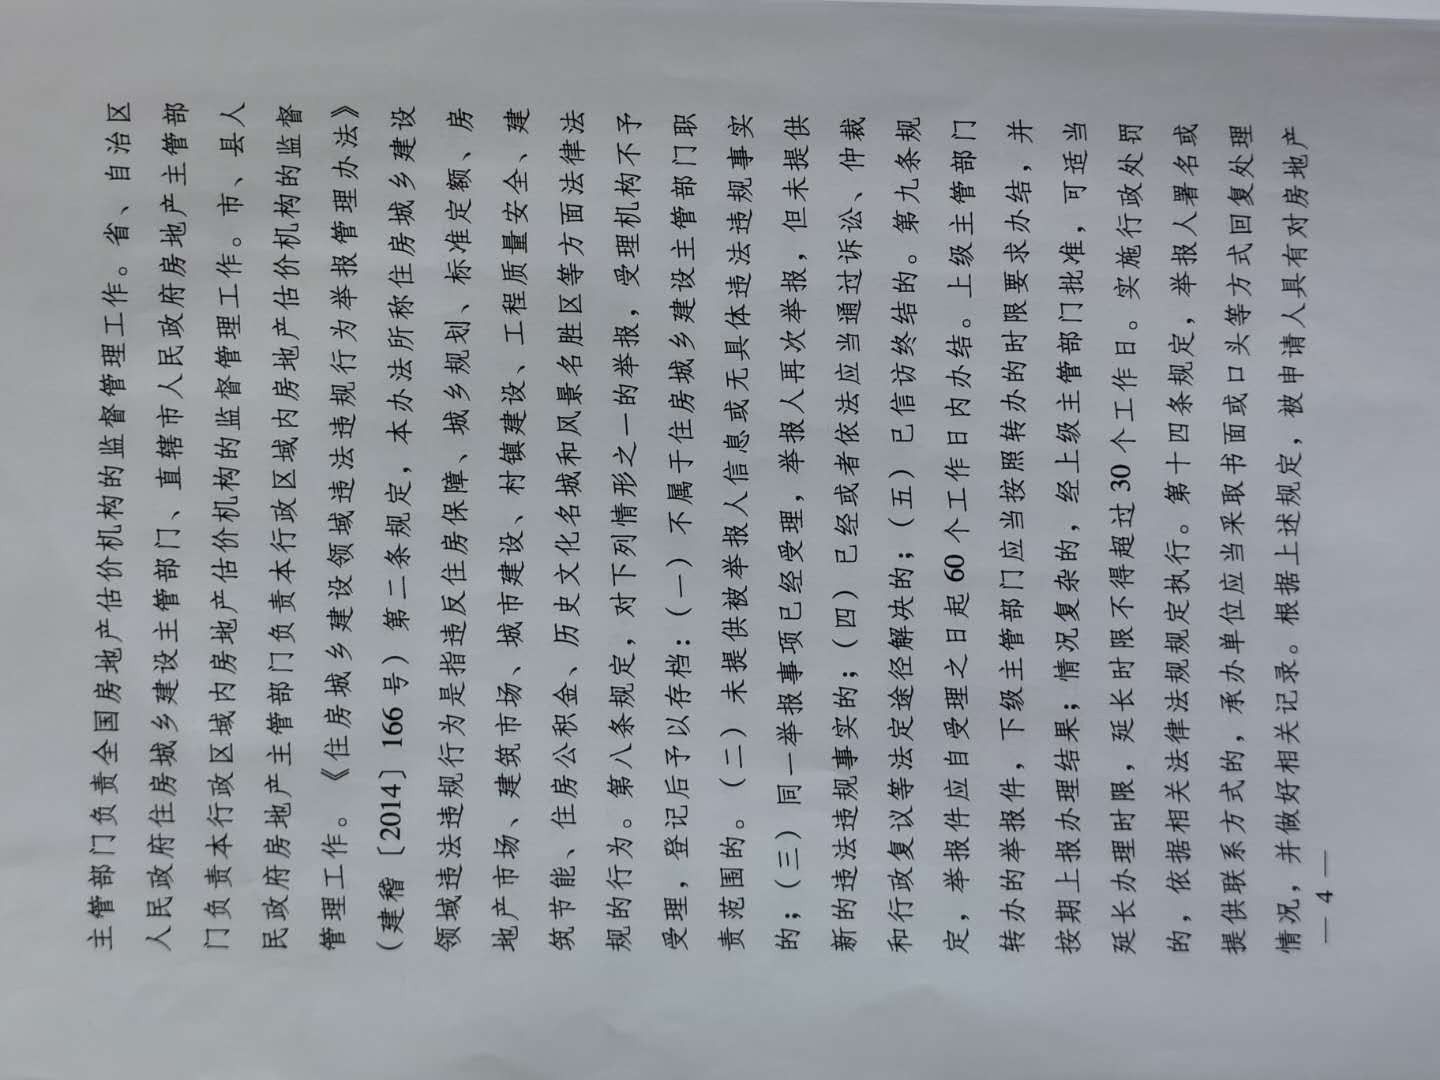 主管部门负责全国房地产估价机构的监督管理工作。省、自治区
人民政府住房城乡建设主管部门、直辖市人民政府房地产主管部
门负责本行政区域内房地产估价机构的监督管理工作。市、县人
民政府房地产主管部门负责本行政区域内房地产估价机构的监督
管理工作。《住房城乡建设领域违法违规行为举报管理办法》
（建稽〔2014〕166号）第二条规定，本办法所称住房城乡建设
领域违法违规行为是指违反住房保障、城乡规划、标准定额、房
地产市场、建筑市场、城市建设、村镇建设、工程质量安全、建
筑节能、住房公积金、历史文化名城和风景名胜区等方面法律法
规的行为。第八条规定，对下列情形之一的举报，受理机构不予
受理，登记后予以存档：（一）不属于住房城乡建设主管部门职
责范围的。（二）未提供被举报人信息或无具体违法违规事实
的；（三）同一举报事项已经受理，举报人再次举报，但未提供
新的违法违规事实的；（四）已经或者依法应当通过诉讼、仲裁
和行政复议等法定途径解决的；（五）已信访终结的。第九条规
定，举报件应自受理之日起60个工作日内办结。上级主管部门
转办的举报件，下级主管部门应当按照转办的时限要求办结，并
按期上报办理结果；情况复杂的，经上级主管部门批准，可适当
延长办理时限，延长时限不得超过30个工作日。实施行政处罚
的，依据相关法律法规规定执行。第十四条规定，举报人署名或
提供联系方式的，承办单位应当采取书面或口头等方式回复处理
情况，并做好相关记录。根据上述规定，被申请人具有对房地产
— 4 —